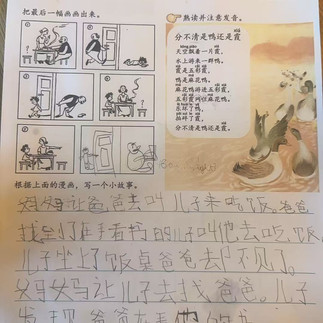 把最后一幅画画出来。
熟读并注意发音。
分不清是鸭还是霞
天空飘着一片霞,
水上游来一群鸭。
霞是五彩霞,
鸭是麻花鸭。
麻花鸭游进五彩霞,
五彩霞网住麻花鸭。
乐坏了鸭,
拍碎了霞,
分不清是鸭还是霞。
根据上面的漫画,写一个小故事。
妈妈让爸爸去叫儿子来吃饭。爸爸
找到了正在看书的儿子叫他去吃饭,
儿子坐上了饭桌爸爸去不见了。
妈妈让儿子去找爸爸。儿子
发现爸爸在看他的书